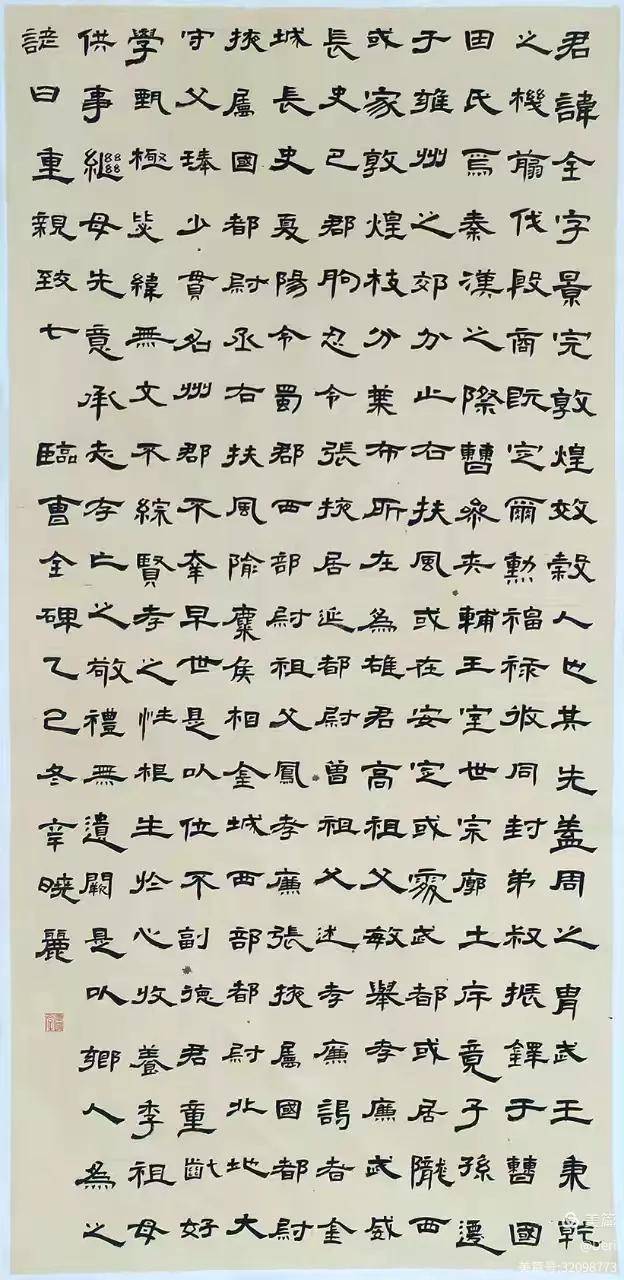 君諱全字景完敦煌效穀人也其先蓋周之冑武王秉乾
之機翦伐殷商既定爾勳福祿攸同封弟叔振鐸于曹國
因氏焉秦漢之際曹參夾輔王室世宗廓土斥竟子孫遷
于雍州之郊分止右扶風或在安定或處武都或居隴西
或家敦煌枝分葉布所在為雄君高祖父敏舉孝廉武威
長史巴郡朐忍令張掖居延都尉曾祖父述孝廉謁者金
城長史夏陽令蜀郡西部尉祖父鳳孝廉張掖屬國都尉
掖屬國都尉丞右扶風隃麋侯相金城西部都尉北地大
守父琫少貫名州郡不幸早世是以位不副德君童齔好
學甄極毖緯無文不綜賢孝之性根生於心收養季祖母
供事繼母先意承志存亡之敬禮無遺闕是以鄉人為之
諺曰重親致七 臨曹全碑乙巳冬辛曉麗
美篇
美篇号:32098773